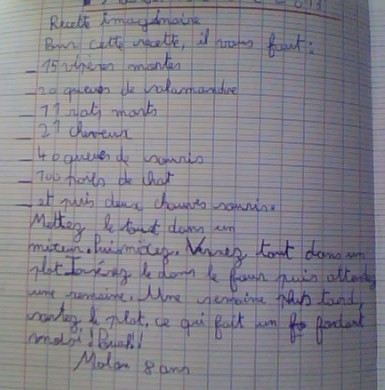 Recette imaginaire
Pour cette recette, il vous faut:
_ 15 vipères mortes
_ 20 queues de salamandre
_ 11 rats morts
_ 21 cheveux
_ 40 queues de souris
_ 100 poils de chat
_ et puis deux chauves souris.
Mettez le tout dans un
mixeur. Puis mixez. Versez tout dans un
plat. Insérez le dans le four puis attendez
une semaine. Une semaine plus tard,
sortez le plat, ce qui fait un fondant
moisi! Bueh!
8 ans